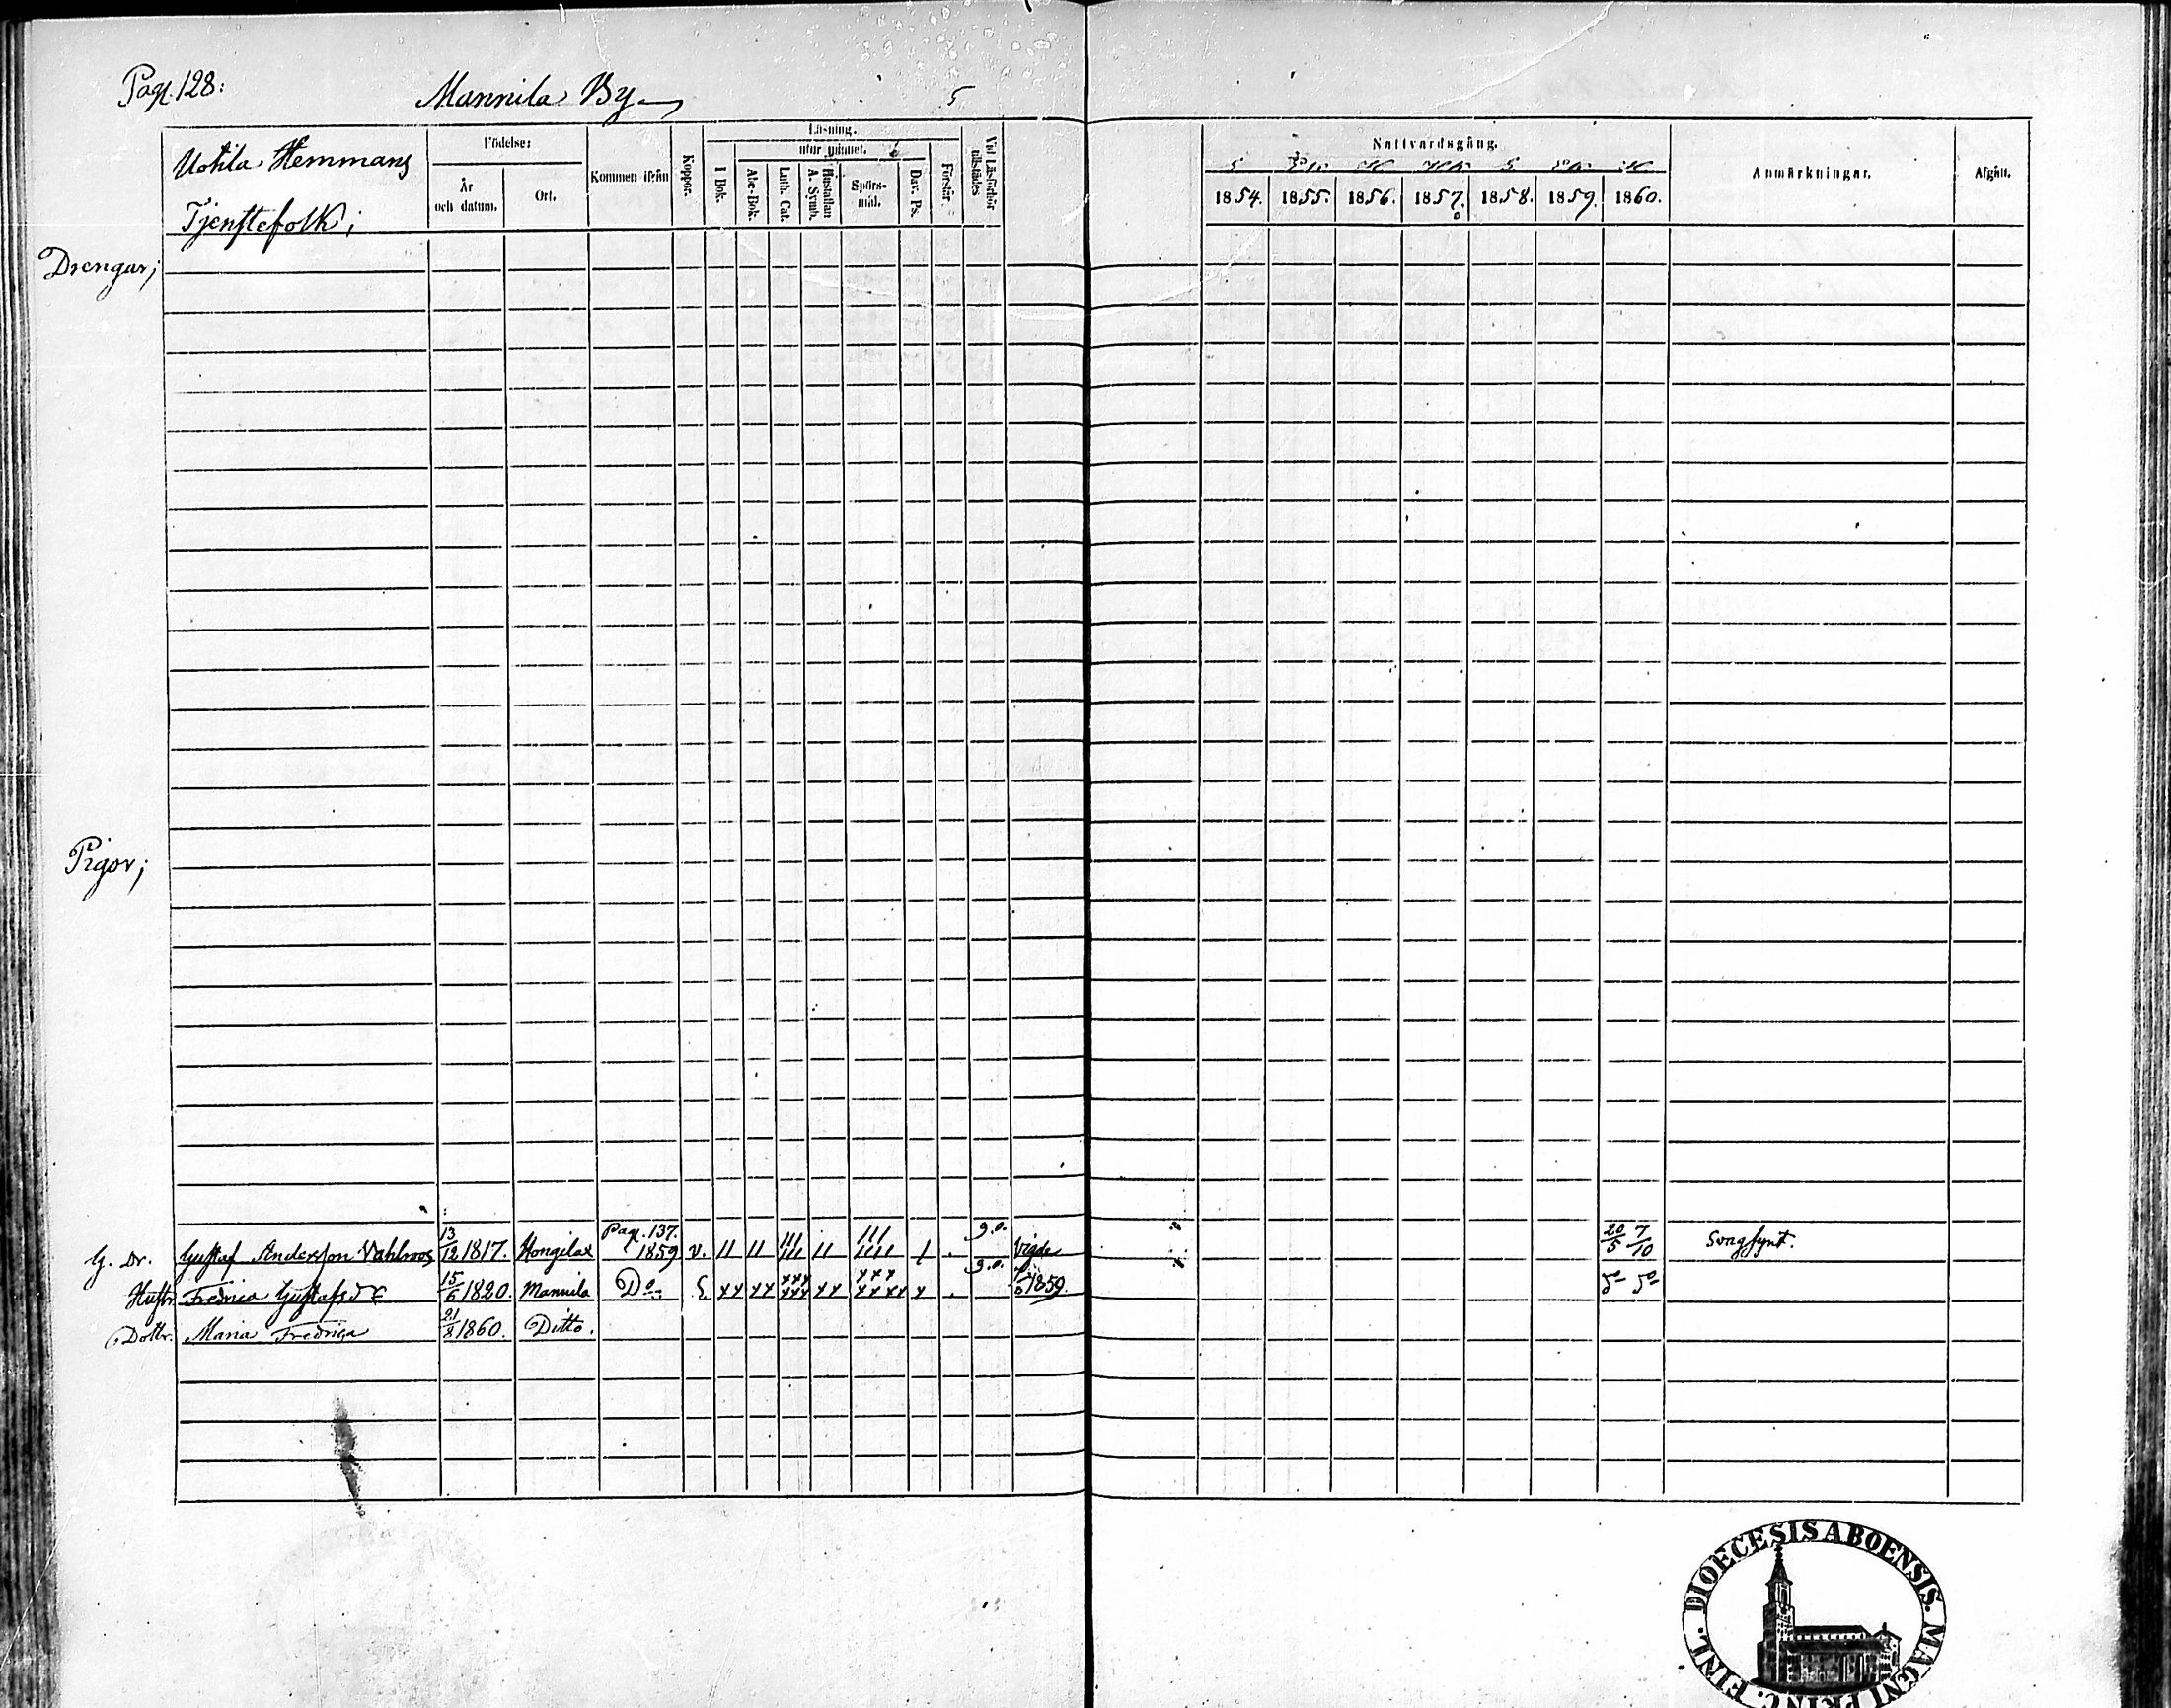 Pag. 128:
Mannila By
5
Uotila Hemmans
Tjenstefolk;
Födelse:
År och datum.
Ort.
Kommen ifrån
Koppor.
Läsning.
I Bok.
utur minnet.
Abc-Bok.
Luth. Cat.
Hustaflan A. Symb.
Spörs-mål.
Dav. Ps.
Förstår.
Vid Läsförhör tillstädes
Nattvardsgång.
1854. 1855. 1856. 1857. 1858. 1859. 1860.
Anmärkningar.
Afgått.
Drengar;
Pigor;
G. Dr. Gustaf Andersson Vahlroos 13/12 1817. Hongilax Pag. 137. 1859 v. 9.0. Vigde 20/5 7/10 Svagsynt.
Hustr. Fredrica Gustafsd:r 15/6 1820. Mannila Do 9.0. 1859. Do Do
Dottr. Maria Fredrica 21/8 1860. Ditto.
DIOECESIS ABOENSIS. MAGNI PRINC. FINL.